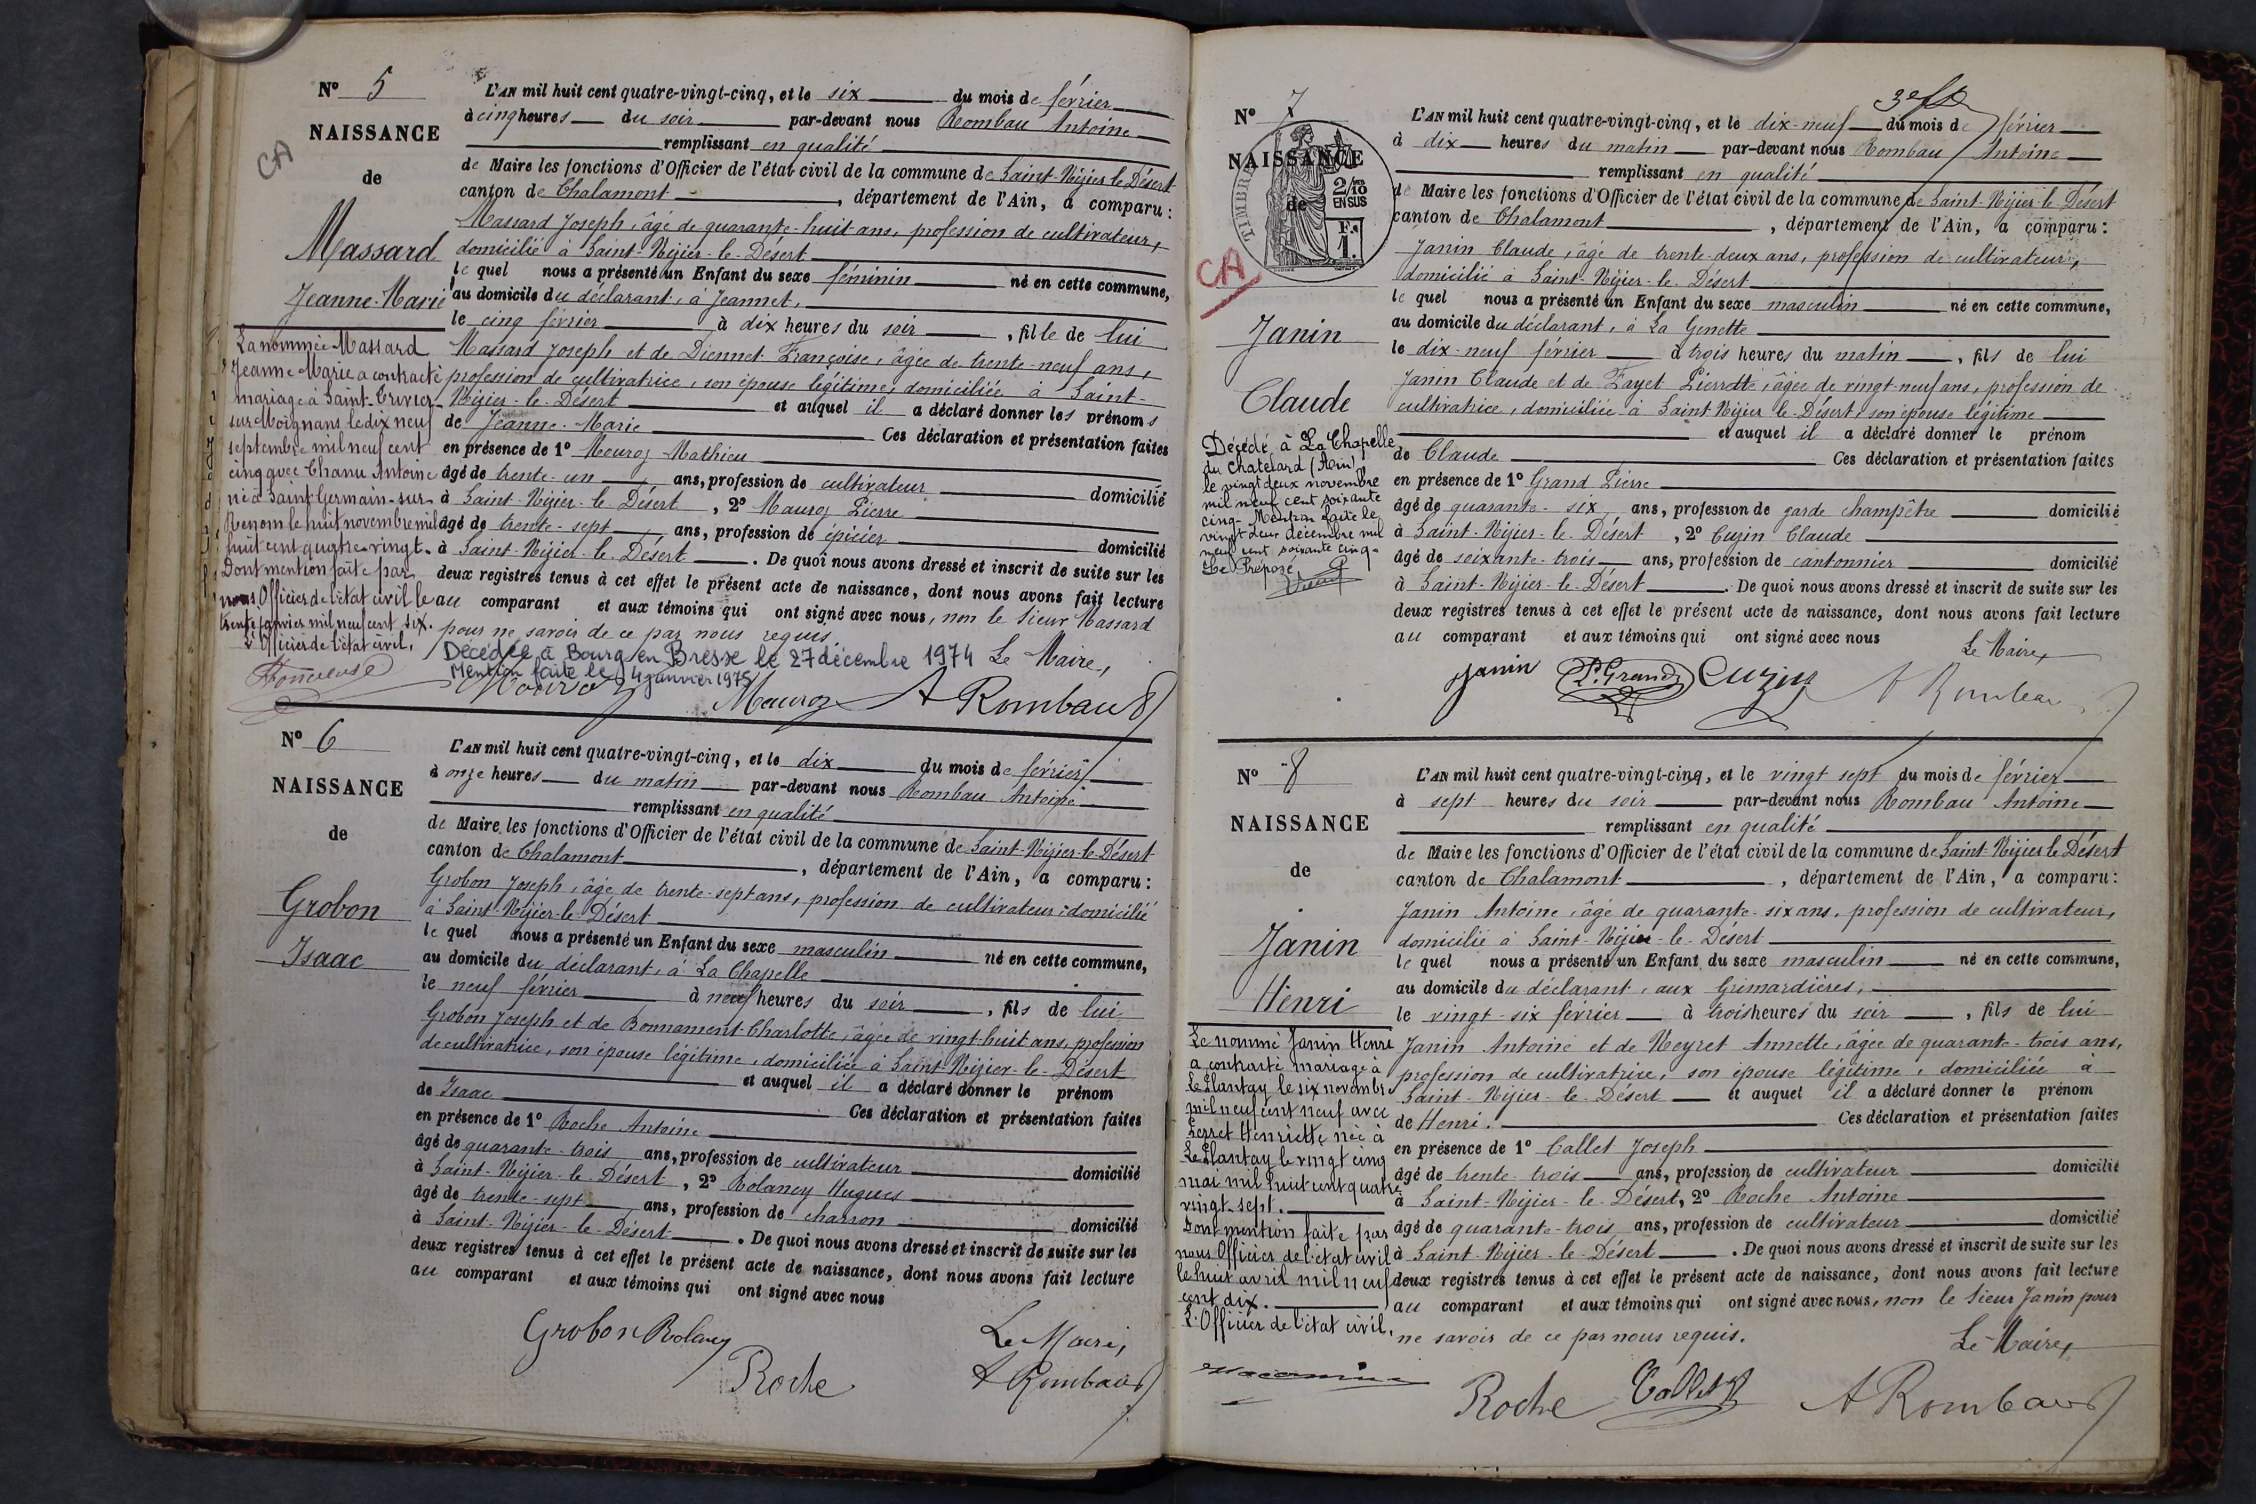 N° 5
NAISSANCE
de
Massard
Jeanne-Marie
CA
L'AN mil huit cent quatre-vingt-cinq, et le six du mois de février
à cinq heures du soir par-devant nous Rombau Antoine
remplissant en qualité
de Maire les fonctions d'Officier de l'état civil de la commune de Saint-Nizier le Désert
canton de Chalamont, département de l'Ain, a comparu :
Massard Joseph, âgé de quarante-huit ans, profession de cultivateur,
domicilié à Saint-Nizier-le-Désert
le quel nous a présenté un Enfant du sexe féminin né en cette commune,
au domicile du déclarant, à Jeannet,
le cinq février à dix heures du soir, fille de lui
Massard Joseph et de Diennet Françoise, âgée de trente-neuf ans,
profession de cultivatrice, son épouse légitime, domiciliée à Saint-
Nizier-le-Désert et auquel il a déclaré donner les prénoms
de Jeanne-Marie Ces déclaration et présentation faites
en présence de 1° Mouroz Mathieu
âgé de trente-un ans, profession de cultivateur domicilié
à Saint-Nizier-le Désert, 2° Mauroz Pierre
âgé de trente-sept ans, profession de épicier domicilié
à Saint-Nizier-le-Désert. De quoi nous avons dressé et inscrit de suite sur les
deux registres tenus à cet effet le présent acte de naissance, dont nous avons fait lecture
au comparant et aux témoins qui ont signé avec nous, non le Sieur Massard
pour ne savoir de ce par nous requis
Le Maire,
Décédée à Bourg en Bresse le 27 décembre 1974
Mention faite le 4 janvier 1975
Mouroz Mauroz A Rombau
La nommée Massard
Jeanne Marie a contracté
mariage à Saint-Trivier
sur Moignans le dix neuf
septembre mil neuf cent
cinq avec Chanu Antoine
né à Saint Germain-sur-
Renom le huit novembre mil
huit cent quatre-vingt.
Dont mention faite par
nous Officier de l'état civil le
trente janvier mil neuf cent six.
L'Officier de l'état civil,
N° 6
NAISSANCE
de
Grobon
Isaac
L'AN mil huit cent quatre-vingt-cinq, et le dix du mois de février
à onze heures du matin par-devant nous Rombau Antoine
remplissant en qualité
de Maire les fonctions d'Officier de l'état civil de la commune de Saint-Nizier-le-Désert
canton de Chalamont, département de l'Ain, a comparu :
Grobon Joseph, âgé de trente-sept ans, profession de cultivateur, domicilié
à Saint-Nizier-le-Désert
le quel nous a présenté un Enfant du sexe masculin né en cette commune,
au domicile du déclarant, à La Chapelle
le neuf février à neuf heures du soir, fils de lui
Grobon Joseph et de Bonnament Charlotte, âgée de vingt-huit ans, profession
de cultivatrice, son épouse légitime, domiciliée à Saint-Nizier-le-Désert
et auquel il a déclaré donner le prénom
de Isaac Ces déclaration et présentation faites
en présence de 1° Roche Antoine
âgé de quarante-trois ans, profession de cultivateur domicilié
à Saint-Nizier-le-Désert, 2° Rolancy Hugues
âgé de trente-sept ans, profession de charron domicilié
à Saint-Nizier-le-Désert. De quoi nous avons dressé et inscrit de suite sur les
deux registres tenus à cet effet le présent acte de naissance, dont nous avons fait lecture
au comparant et aux témoins qui ont signé avec nous
Grobon Rolancy Le Maire,
Roche A Rombau
N° 7
NAISSANCE
de
TIMBRE
2/10
EN SUS
F.
1.
CA
Janin
Claude
L'AN mil huit cent quatre-vingt-cinq, et le dix-neuf du mois de février
à dix heures du matin par-devant nous Rombau Antoine
remplissant en qualité
de Maire les fonctions d'Officier de l'état civil de la commune de Saint-Nizier-le Désert
canton de Chalamont, département de l'Ain, a comparu :
Janin Claude, âgé de trente-deux ans, profession de cultivateur,
domicilié à Saint-Nizier-le-Désert
le quel nous a présenté un Enfant du sexe masculin né en cette commune,
au domicile du déclarant, à La Genette
le dix-neuf février à trois heures du matin, fils de lui
Janin Claude et de Fayet Pierrette, âgée de vingt-neuf ans, profession de
cultivatrice, domiciliée à Saint Nizier le-Désert, son épouse légitime
et auquel il a déclaré donner le prénom
de Claude Ces déclaration et présentation faites
en présence de 1° Grand Pierre
âgé de quarante-six ans, profession de garde champêtre domicilié
à Saint-Nizier-le-Désert, 2° Cuzin Claude
âgé de soixante-trois ans, profession de cantonnier domicilié
à Saint-Nizier-le-Désert. De quoi nous avons dressé et inscrit de suite sur les
deux registres tenus à cet effet le présent acte de naissance, dont nous avons fait lecture
au comparant et aux témoins qui ont signé avec nous
Le Maire,
Janin P. Grand Cuzin A Rombau
Décédé à La Chapelle
du Chatelard (Ain)
le vingt deux novembre
mil neuf cent soixante
cinq- Mention faite le
vingt deux décembre mil
neuf cent soixante cinq-
Le Préposé
N° 8
NAISSANCE
de
Janin
Henri
L'AN mil huit cent quatre-vingt-cinq, et le vingt sept du mois de février
à sept heures du soir par-devant nous Rombau Antoine
remplissant en qualité
de Maire les fonctions d'Officier de l'état civil de la commune de Saint-Nizier le Désert
canton de Chalamont, département de l'Ain, a comparu :
Janin Antoine, âgé de quarante-six ans, profession de cultivateur,
domicilié à Saint-Nizier-le-Désert
le quel nous a présenté un Enfant du sexe masculin né en cette commune,
au domicile du déclarant, aux Grimardières,
le vingt-six février à trois heures du soir, fils de lui
Janin Antoine et de Neyret Annette, âgée de quarante-trois ans,
profession de cultivatrice, son épouse légitime, domiciliée à
Saint-Nizier-le-Désert et auquel il a déclaré donner le prénom
de Henri. Ces déclaration et présentation faites
en présence de 1° Callet Joseph
âgé de trente-trois ans, profession de cultivateur domicilié
à Saint-Nizier-le-Désert, 2° Roche Antoine
âgé de quarante-trois ans, profession de cultivateur domicilié
à Saint-Nizier-le-Désert. De quoi nous avons dressé et inscrit de suite sur les
deux registres tenus à cet effet le présent acte de naissance, dont nous avons fait lecture
au comparant et aux témoins qui ont signé avec nous, non le Sieur Janin pour
ne savoir de ce par nous requis.
Le Maire,
Roche Callet A Rombau
Le nommé Janin Henri
a contracté mariage à
Le Plantay le six novembre
mil neuf cent neuf avec
Perret Henriette née à
Le Plantay le vingt cinq
mai mil huit cent quatre
vingt-sept.
Dont mention faite par
nous Officier de l'état civil
le huit avril mil neuf
cent dix.
L'Officier de l'état civil,